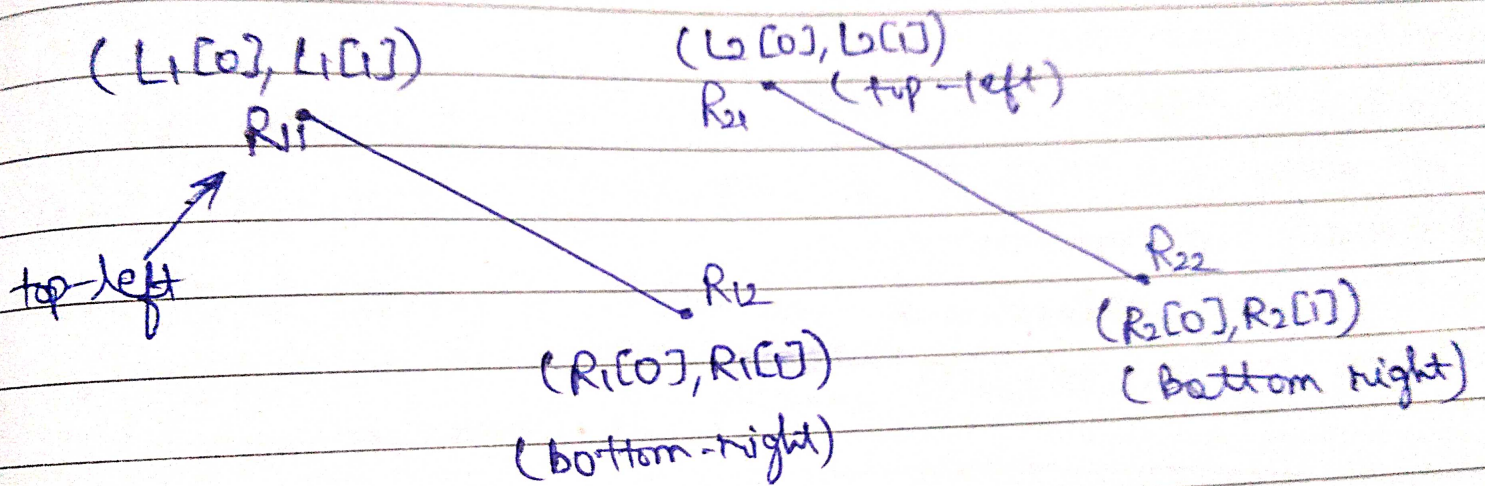 (L1[0], L1[1])
R11
top-left
R12
(R1[0], R1[1])
(bottom-right)
(L2[0], L2[1])
(top-left)
R21
R22
(R2[0], R2[1])
(Bottom right)